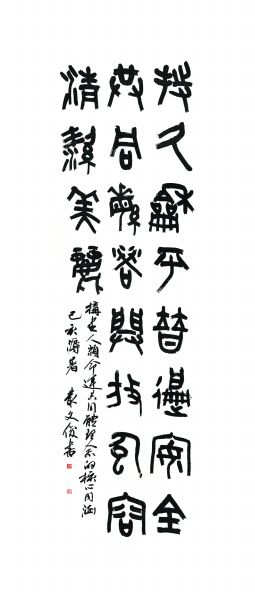 持久龢平普遍安全
共同繁榮開放包容
清絜美麗
構建人類命運共同體理念的核心內涵
己亥溽暑 袁文俊書